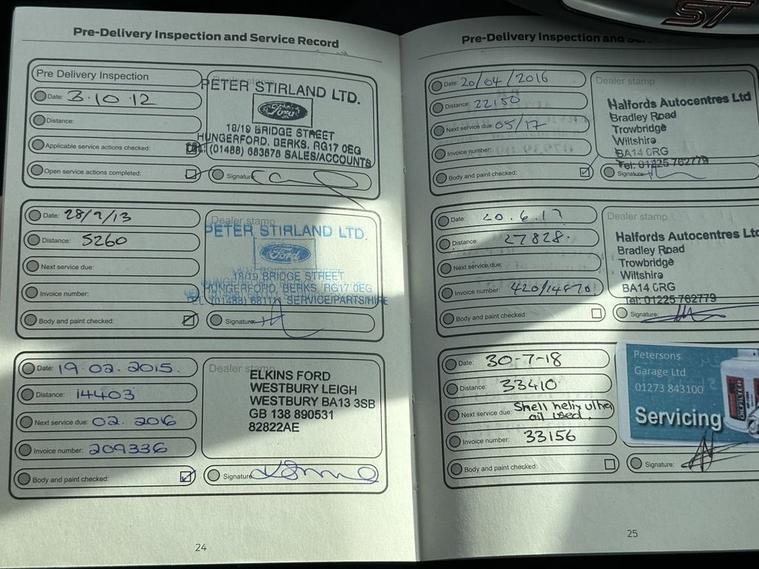 Pre-Delivery Inspection and Service Record
Pre Delivery Inspection
Date: 3.10.12
Distance:
Applicable service actions checked:
Open service actions completed:
Dealer stamp
PETER STIRLAND LTD.
Ford
18/19 BRIDGE STREET
HUNGERFORD, BERKS, RG17 0EG
(01488) 683678 SALES/ACCOUNTS
Signature
Date: 28/9/13
Distance: 5260
Next service due:
Invoice number:
Body and paint checked:
Dealer stamp
PETER STIRLAND LTD.
Ford
18/19 BRIDGE STREET
HUNGERFORD, BERKS, RG17 0EG
SERVICE/PARTS/HIRE
Signature:
Date: 19.02.2015.
Distance: 14403
Next service due: 02.2016
Invoice number: 209336
Body and paint checked:
Dealer stamp
ELKINS FORD
WESTBURY LEIGH
WESTBURY BA13 3SB
GB 138 890531
82822AE
Signature
24
Pre-Delivery Inspection and
ST
Date: 20/04/2016
Distance: 22150
Next service due: 05/17
Invoice number:
Body and paint checked:
Dealer stamp
Halfords Autocentres Ltd
Bradley Road
Trowbridge
Wiltshire
BA14 0RG
Tel: 01225 762779
Signature:
Date: 20.6.17
Distance: 27828.
Next service due:
Invoice number:
Body and paint checked:
Dealer stamp
Halfords Autocentres Ltd
Bradley Road
Trowbridge
Wiltshire
BA14 0RG
Tel: 01225 762779
Signature:
Date: 30-7-18
Distance: 33410
Next service due: Shell helix ultra
oil used.
Invoice number: 33156
Body and paint checked:
Petersons
Garage Ltd
01273 843100
Servicing
Signature:
25